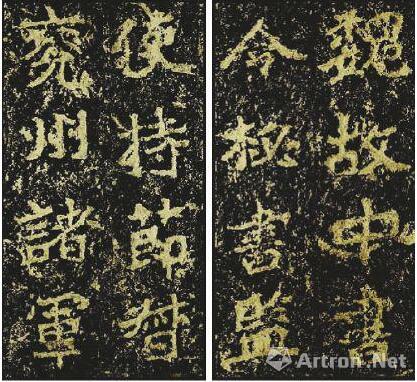 魏故中書
令秘書監
使持節督
兗州諸軍
Artron.Net